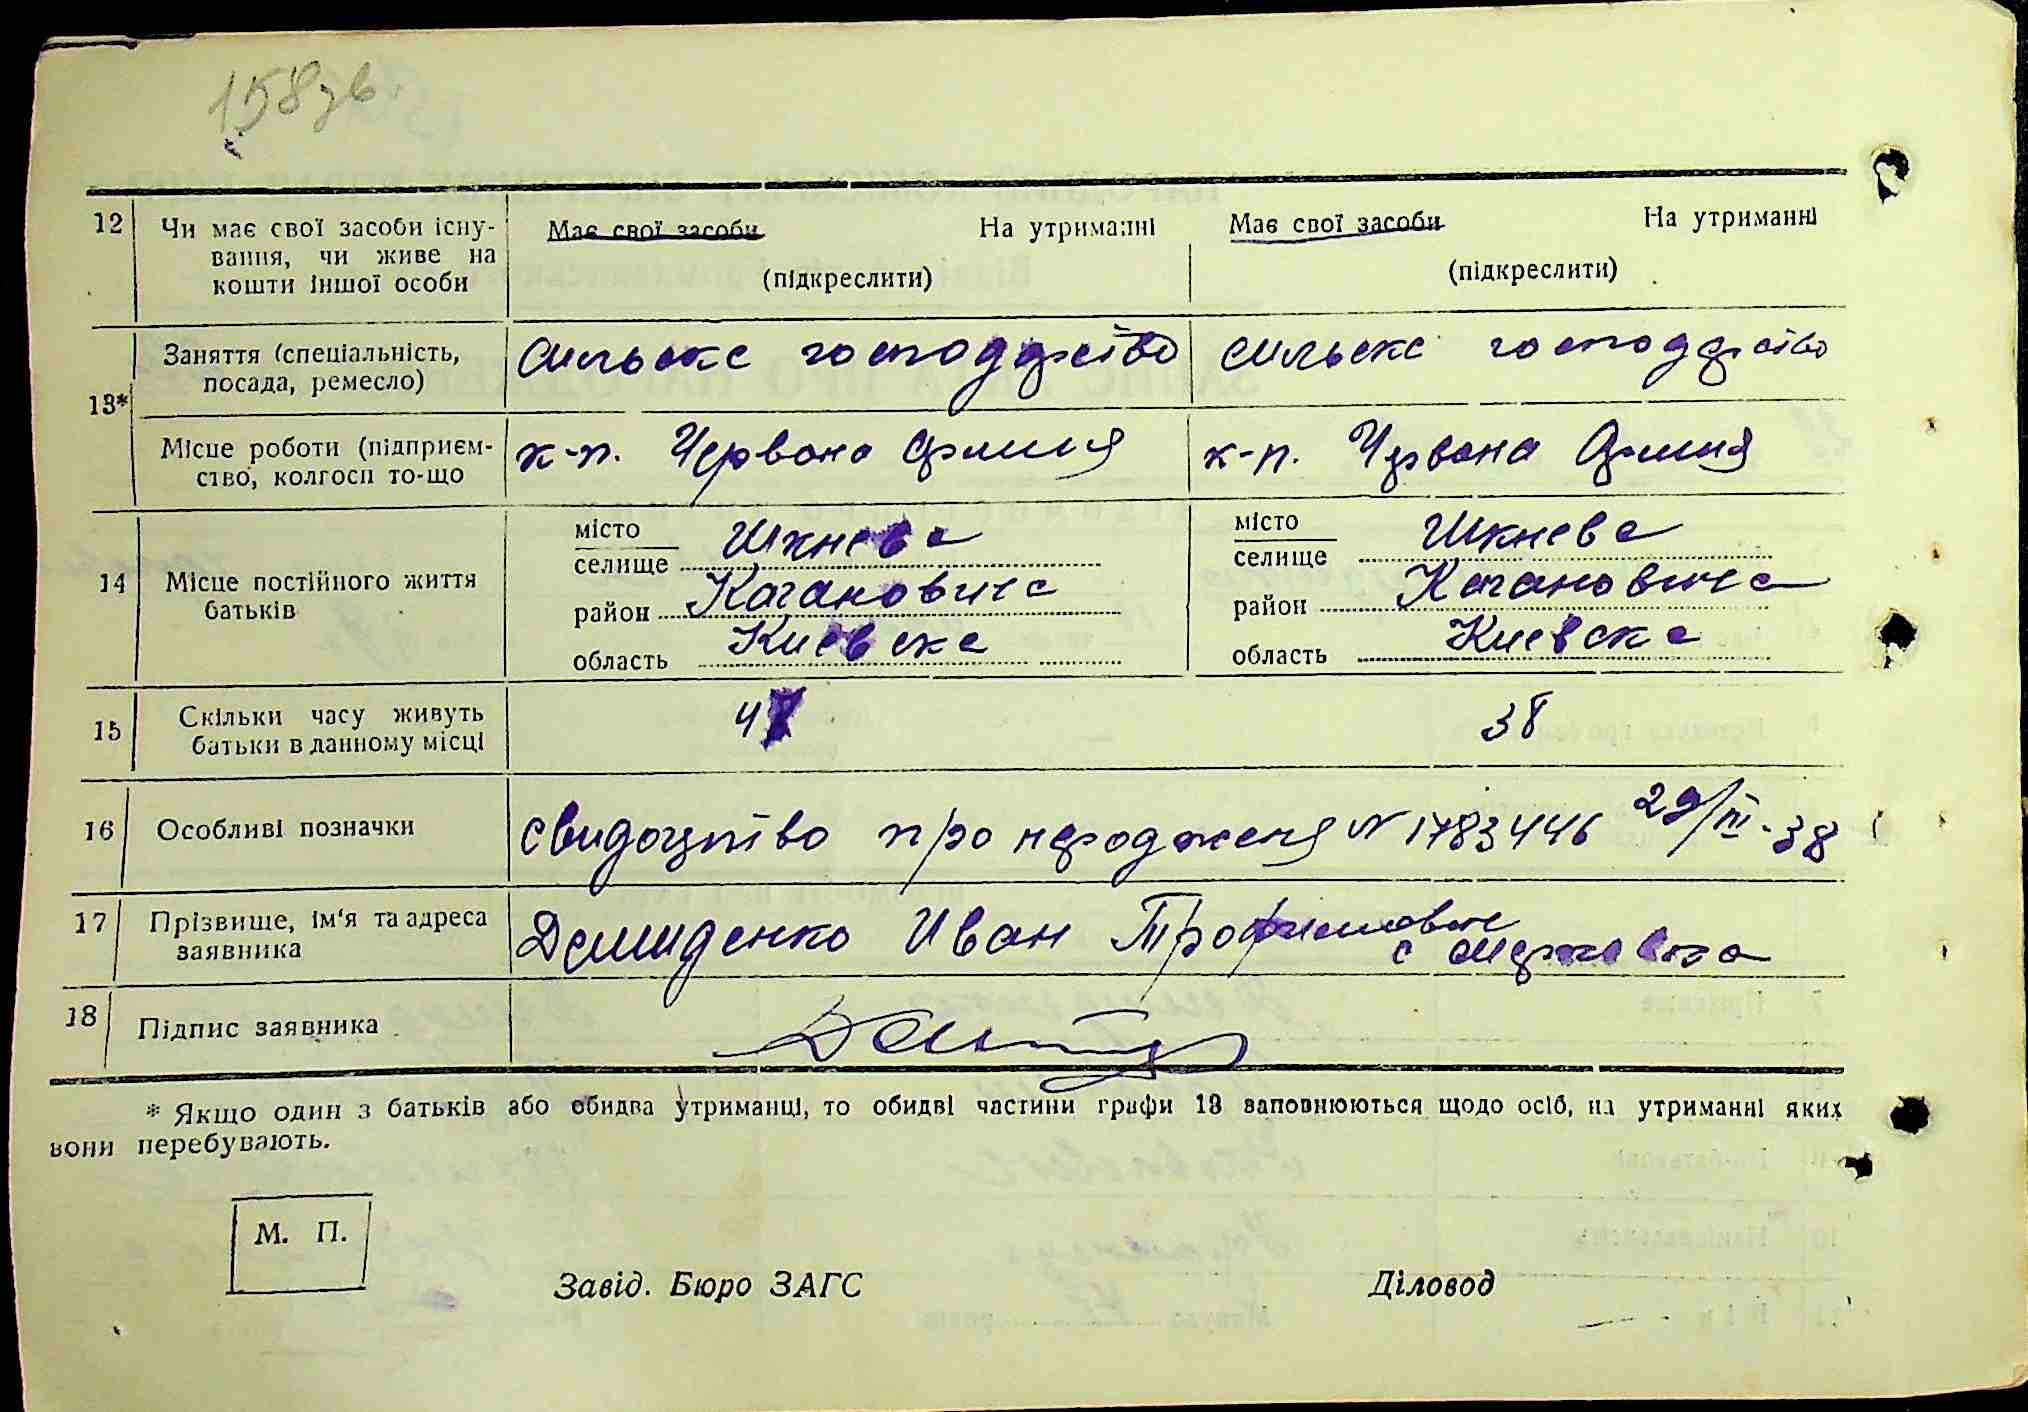 158 зв
12 Чи має свої засоби існу-
вання, чи живе на
кошти іншої особи
Має свої засоби На утриманні
(підкреслити)
Має свої засоби На утриманні
(підкреслити)
13*
Заняття (спеціальність,
посада, ремесло)
сильске господрство
сильске господрство
Місце роботи (підприєм-
ство, колгосп то-що
к-п. Червона Армия
к-п. Червона Армия
14 Місце постійного життя
батьків
місто
селище Шкнева
район Кагановича
область Киевска
місто
селище Шкнева
район Кагановича
область Киевска
15 Скільки часу живуть
батьки в данному місці
47
38
16 Особливі позначки
свидоцтво про нероджения № 1783446 29/III-38
17 Прізвище, ім'я та адреса
заявника
Демиденко Иван Трофимович
с
18 Підпис заявника
* Якщо один з батьків або обидва утриманці, то обидві частини графи 13 заповнюються щодо осіб, на утриманні яких
вони перебувають.
М. П.
Завід. Бюро ЗАГС Діловод